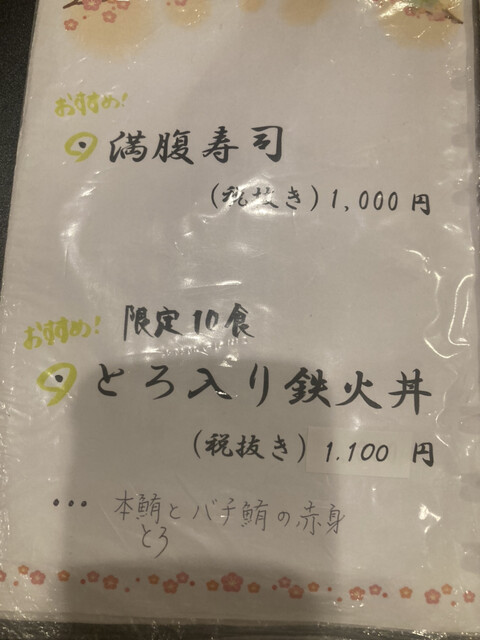 おすすめ!
満腹寿司
(税抜き) 1,000 円
おすすめ! 限定10食
とろ入り鉄火丼
(税抜き) 1.100 円
… 本鮪とバチ鮪の赤身
とろ